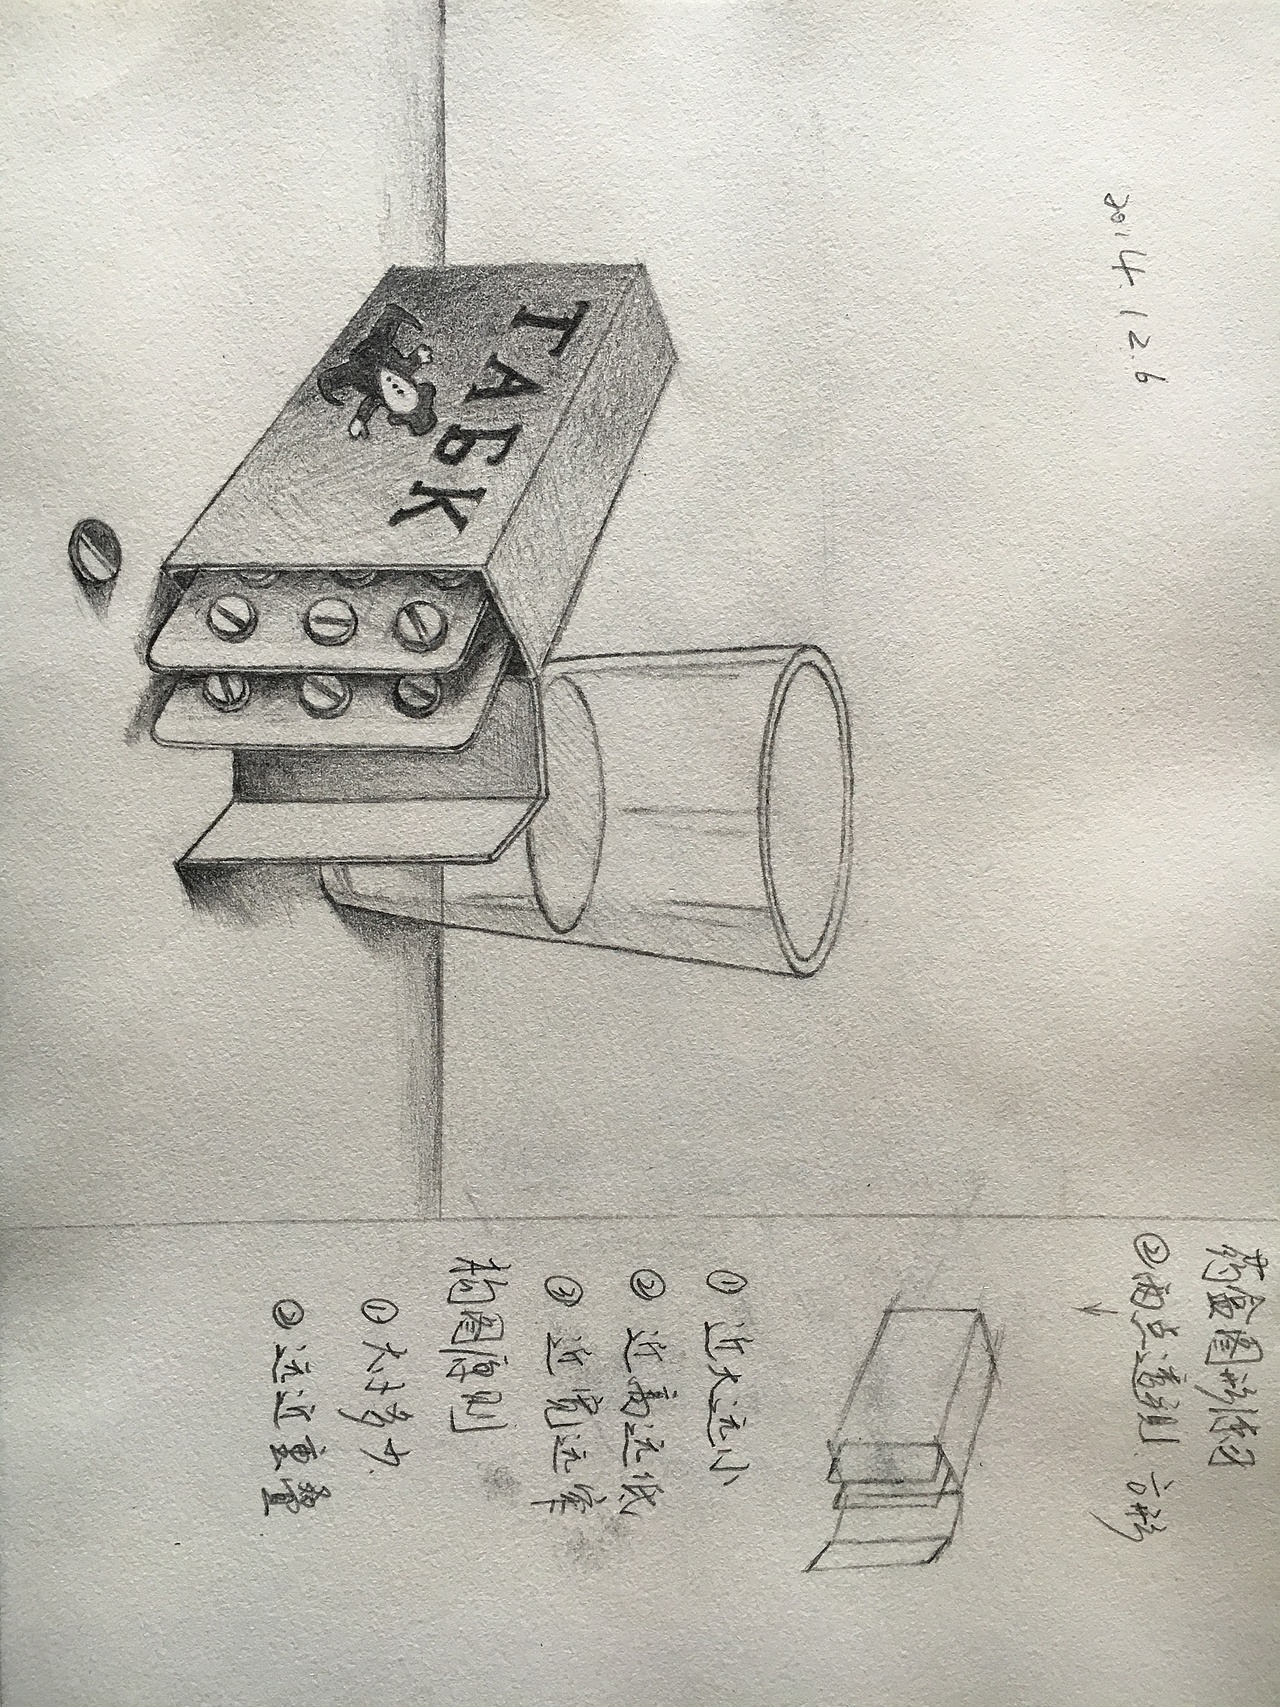 2014.12.6
ТАБК
药盒图形练习
②两点透视 方形
① 近大远小
② 近高远低
③ 近宽远窄
构图原则
① 大小多少
② 远近重叠